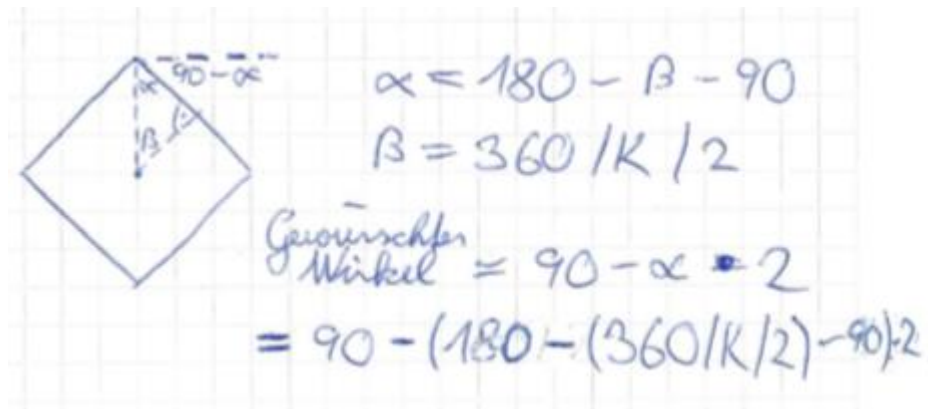 90-α
α
β
α = 180 - β - 90
β = 360/K/2
Gewünschter
Winkel = 90 - α • 2
= 90 - (180 - (360/K/2) - 90)·2